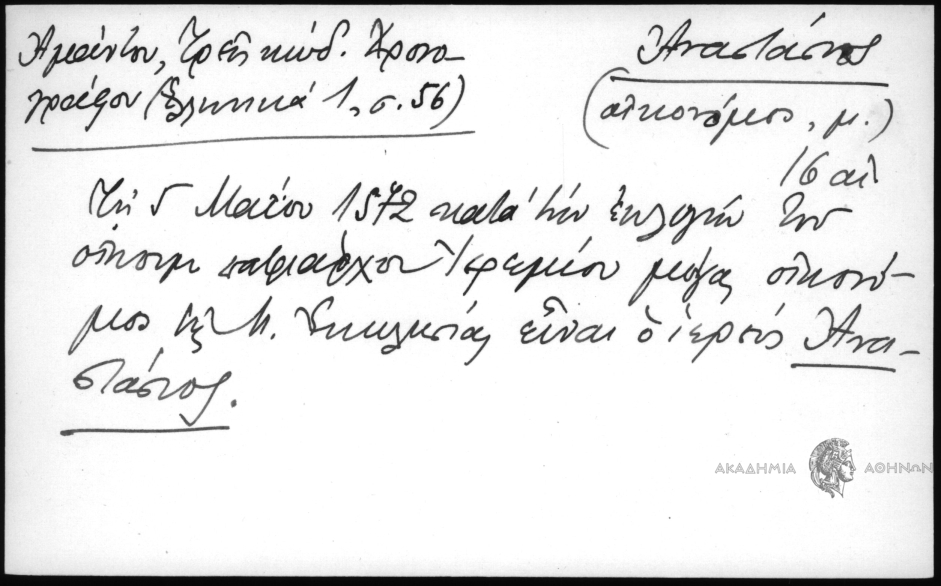 Ἀμάντου, Τρεῖς κώδ. Χρονο-
γράφου (Ἑλληνικά 1, σ. 56)
Ἀναστάσιος
(οἰκονόμος, μ.)
16 αἰ
Τῇ 5 Μαΐου 1572 κατὰ τὴν ἐκλογὴν τοῦ
οἰκουμ πατριάρχου Ἱερεμίου μέγας οἰκονό-
μος τῆς Μ. Ἐκκλησίας εἶναι ὁ ἱερεὺς Ἀνα-
στάσιος.
ΑΚΑΔΗΜΙΑ ΑΘΗΝΩΝ